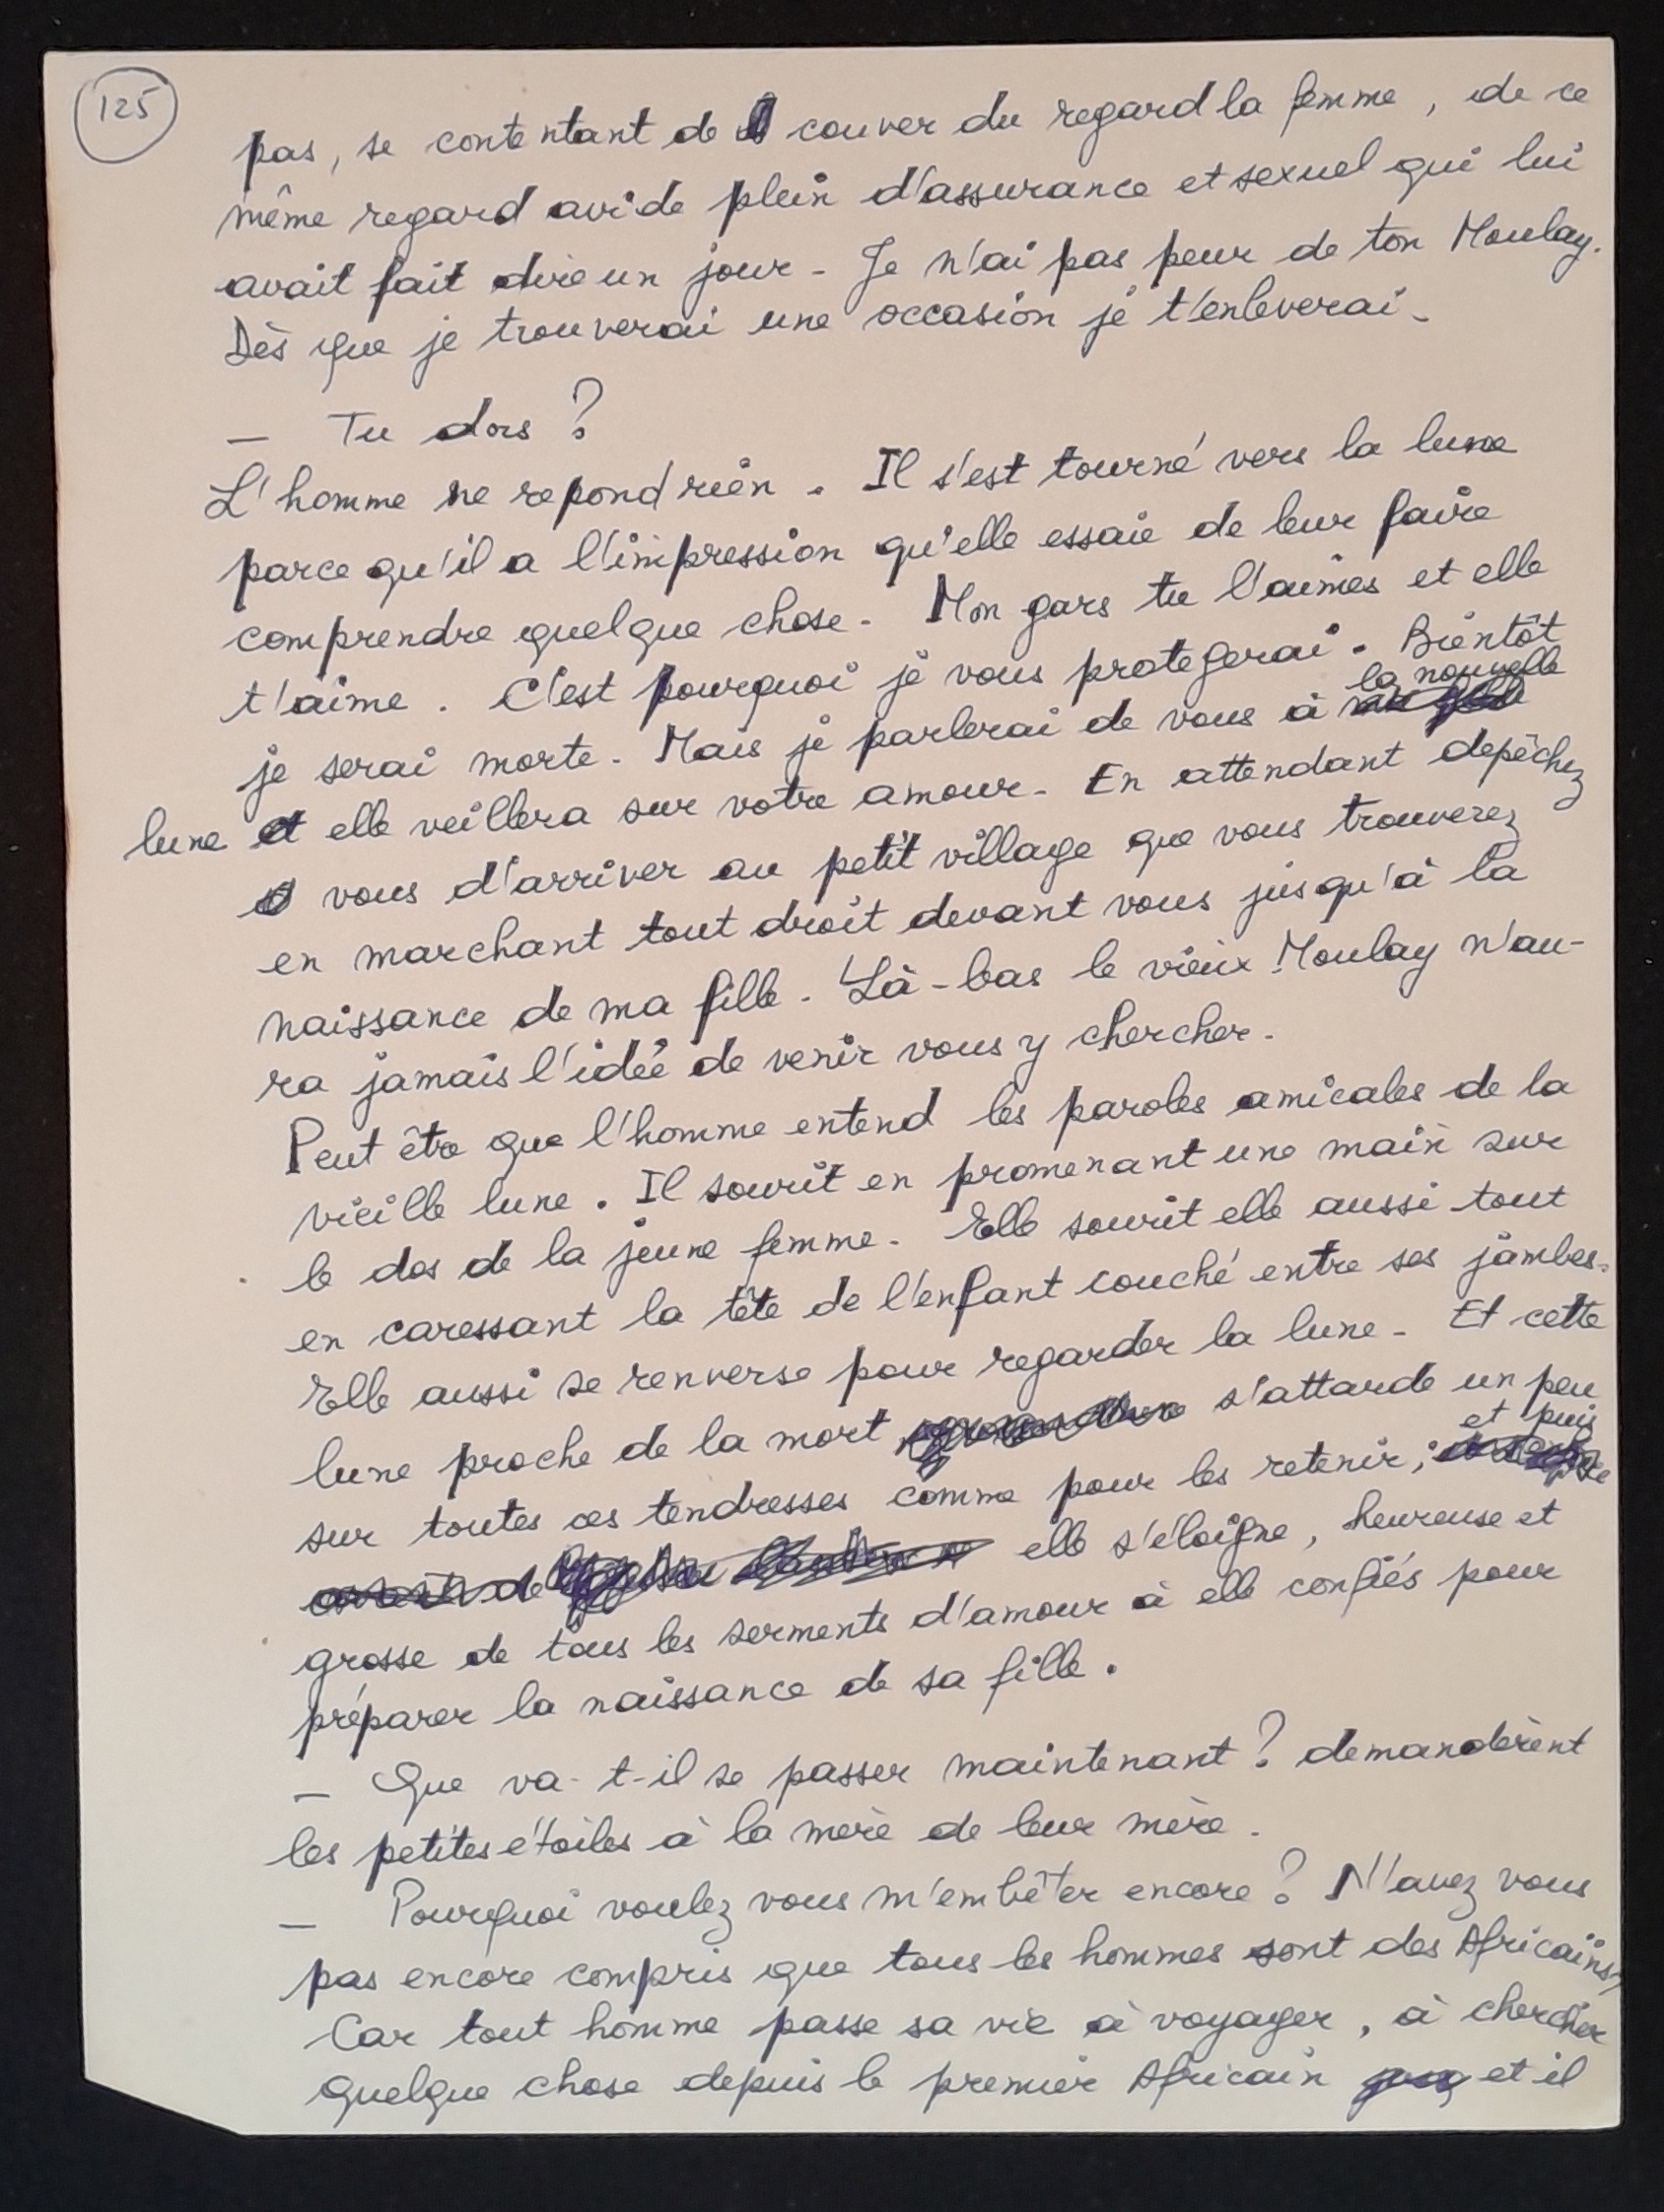 125
pas, se contentant de couver du regard la femme, de ce
même regard avide plein d'assurance et sexuel qui lui
avait fait dire un jour - Je n'ai pas peur de ton Moulay.
Dès que je trouverai une occasion je t'enleverai -
— Tu dors ?
L'homme ne repond rien. Il s'est tourné vers la lune
parce qu'il a l'impression qu'elle essaie de leur faire
comprendre quelque chose - Mon gars tu l'aimes et elle
t'aime. C'est pourquoi je vous protegerai. Bientôt
je serai morte - Mais je parlerai de vous à la nouvelle
lune et elle veillera sur votre amour - En attendant depêchez
vous d'arriver au petit village que vous trouverez
en marchant tout droit devant vous jusqu'à la
naissance de ma fille - Là-bas le vieux Moulay n'au-
ra jamais l'idée de venir vous y chercher -
Peut être que l'homme entend les paroles amicales de la
vieille lune. Il sourit en promenant une main sur
le dos de la jeune femme - Elle sourit elle aussi tout
en caressant la tête de l'enfant couché entre ses jambes -
Elle aussi se renverse pour regarder la lune - Et cette
lune proche de la mort s'attarde un peu
sur toutes ces tendresses comme pour les retenir, et puis
elle s'éloigne, heureuse et
grosse de tous les serments d'amour à elle confiés pour
préparer la naissance de sa fille.
— Que va-t-il se passer maintenant ? demandèrent
les petites étoiles à la mère de leur mère.
— Pourquoi voulez vous m'embêter encore ? N'avez vous
pas encore compris que tous les hommes sont des Africains ?
Car tout homme passe sa vie à voyager, à chercher
quelque chose depuis le premier Africain et il